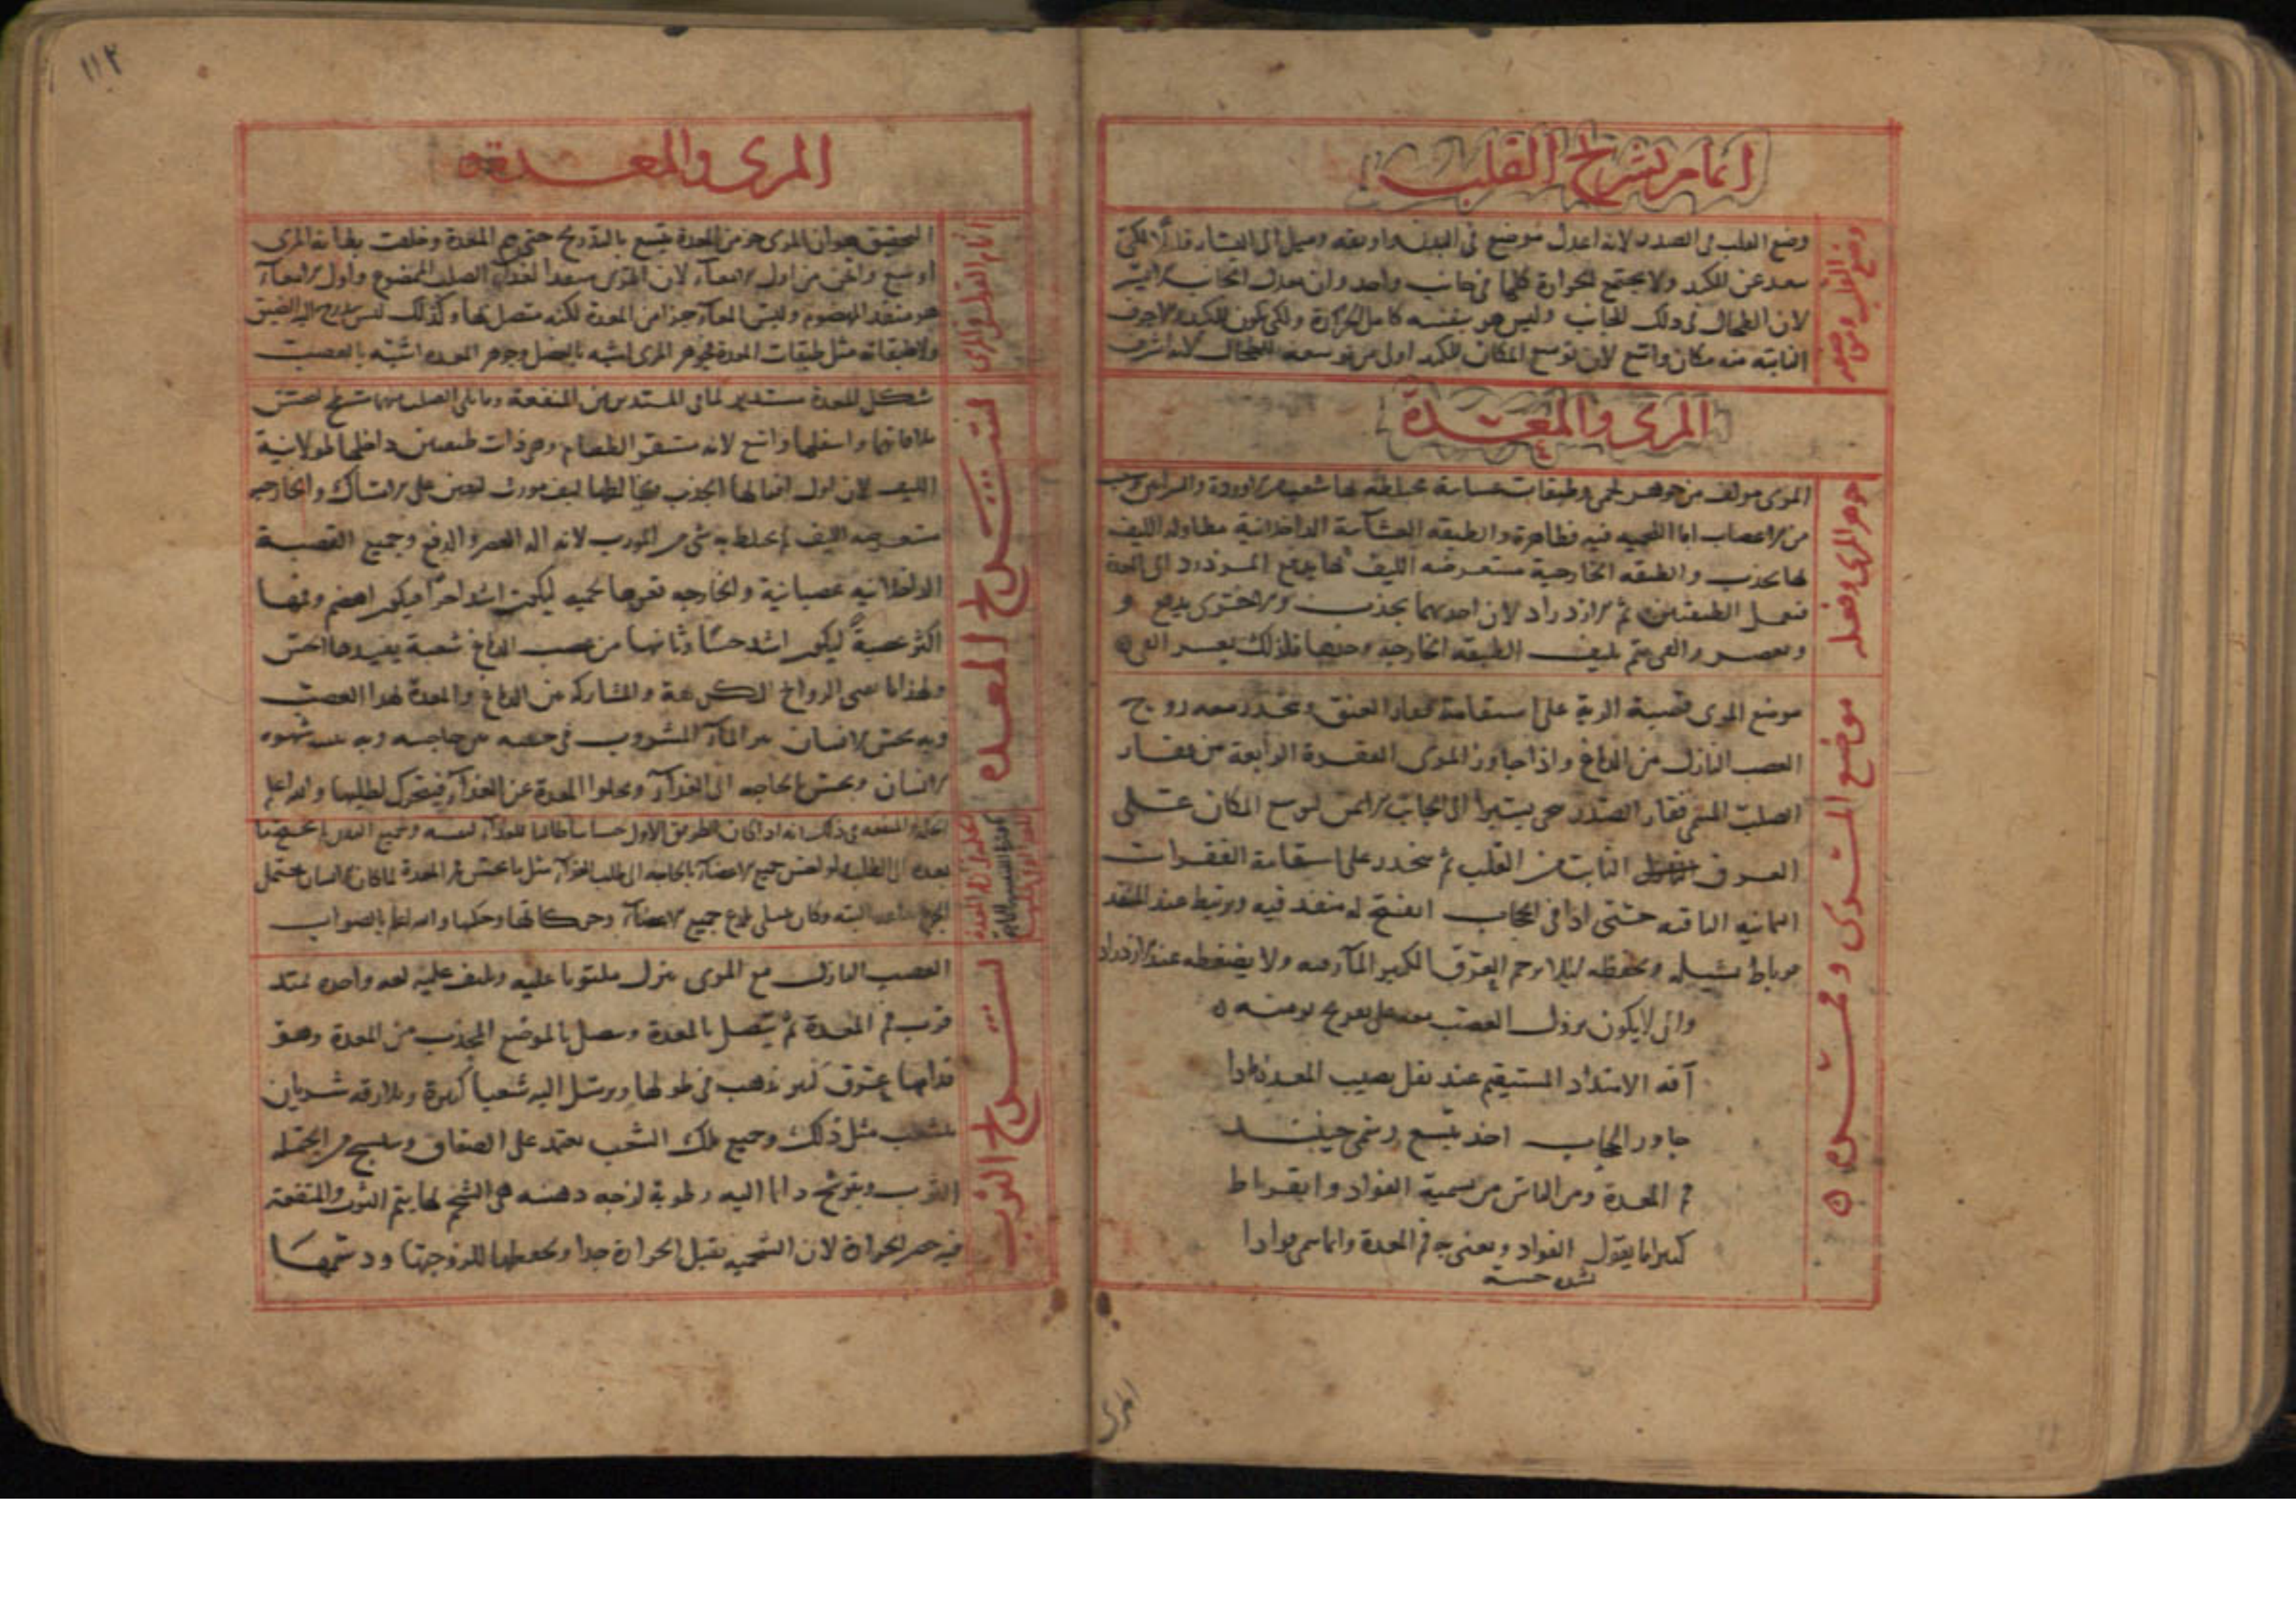 اتمام تشريح القلب
وضع القلب في الصدر لانه اعدل موضع في البدن واوفقه وميل الى اليسار قليلا لكي
يبعد عن الكبد ولا يجتمع الحرارة كلها في جانب واحد وان يعدل الجانب الايسر
لان الطحال في ذلك الجانب وليس هو بنفسه كامل الحرارة ولكي يكون للكبد والاجوف
النابته منه مكان واسع لان توسع المكان للكبد اولى من توسعه للطحال لانه اشرف
المرى والمعدة
جوهر المرى وفعله
المرى مولف من جوهر لحمى وطبقات غشائية
من الاعصاب اما اللحمية فيه فظاهرة والطبقة الغشائية الداخلانية مطاولة الليف
بها يجذب والطبقه الخارجية مستعرضه الليف بها يدفع المزدرد الى المعدة
فبعمل الطبقتين تم الازدراد لان احديهما يجذب والاخرى يدفع و
ويعصر والقى يتم بليف الطبقه الخارجيه وحدها فلذلك يعسر القى
موضع المرى ومحتره
موضع المرى قصبة الرية على استقامة فقار العنق وينحدر معه زوج
العصب النازل من الدماغ واذا جاوز المرى الفقرة الرابعة من فقار
الصلب المسمى فقار الصدر تنحى يسيرا الى الجانب الايمن لوسع المكان على
العرق النابت من القلب ثم ينحدر على استقامة الفقرات
الثمانية الباقيه حتى اذا وافى الحجاب انفتح له منفذ فيه ويرتبط عند المنفذ
برباط يشيله ويحفظه ليلا يزحم العرق الكبير المار فيه ولا يضغطه عند الازدراد
وانى لا يكون نزول العصب معه على تعريج يومنه
آفه الامتداد المستقيم عند ثقل يصيب المعدة فاذا
جاوز الحجاب اخذ يتسع ويسمى حينئذ
فم المعدة ومن الناس من يسميه الفواد وابقراط
كثيرا ما يقول الفواد ويعنى به فم المعدة وانما سمى فوادا
لشدة حسه
المرى
١١٢
المرى والمعدة
التحقيق هو ان المرى جزء من المعدة يتسع بالتدريج حتى فم المعدة وخلقت بطانة المرى
اوسع واثخن من اول الامعاء لان المرى منفذ الغذاء الصلب الممضوغ واول الامعاء
هو منفذ المهضوم وليس المعاء جزءا من المعدة لكنه متصل بها وكذلك ليس يتدرج اليه الضيق
ولا طبقاته مثل طبقات المعدة وجوهر المرى اشبه بالعضل وجوهر المعدة اشبه بالعصب
تشريح المعده
شكل المعدة مستدير لما في المستدير من المنفعة وما يلى الصلب منها مسطح ليحسن
ملاقاتها واسفلها واسع لانه مستقر الطعام وهى ذات طبقتين داخلها طولانية
الليف لان اول افعالها الجذب ويخالطها ليف مورب ليعين على الامساك والخارجيه
مستعرضه الليف لم يختلط به شى من المورب لانه اله العصر والدفع وجميع الطبقة
الداخلانيه عصبانية والخارجيه قعرها لحميه ليكون اشد حرا فيكون اهضم وفمها
اكثر عصبية ليكون اشد حسا وياتيها من عصب الدماغ شعبة يفيدها الحس
ولهذا ما يحس الروايح الكريهة والمشاركة من الدماغ والمعدة بهذا العصب
وبه يحس الانسان برد الماء المشروب
الانسان ويحس بالحاجه الى الغذاء وبخلوا المعدة عن الغذاء فيتحرك لطلبها والله اعلم
والمنفعه في ذلك انه اذا كان الطريق الاول حساسا طالبا للغذاء لنفسه ولجميع البدن
بعده الى الطلب ولو احس جميع الاعضاء بالحاجه الى طلب الغذاء مثل ما يحس فم المعدة لما كان الانسان يحتمل
الجوع ساعه البته وكان يستولى الوجع جميع الاعضاء وحركاتها وحكمها والله اعلم بالصواب
تشريح الثرب
العصب النازل مع المرى ينزل ملتويا عليه ويلتف عليه لفه واحده عند
قرب فم المعدة ثم يتصل بالمعدة ويتصل بالموضع المحدب من المعدة وهو
قدامها عرق كبير يذهب في طولها ويرسل اليه شعبا كثيرة ويلازقه شريان
يتشعب مثل ذلك وجميع تلك الشعب يعتمد على الصفاق وينتسج من الجمله
الثرب ويترشح دايما اليه رطوبة لزجه دهنيه هى الشحم بها يتم الثرب والمنفعة
فيه حصر الحرارة لان الشحميه يقبل الحرارة جدا ويحفظها للزوجتها ودسمها